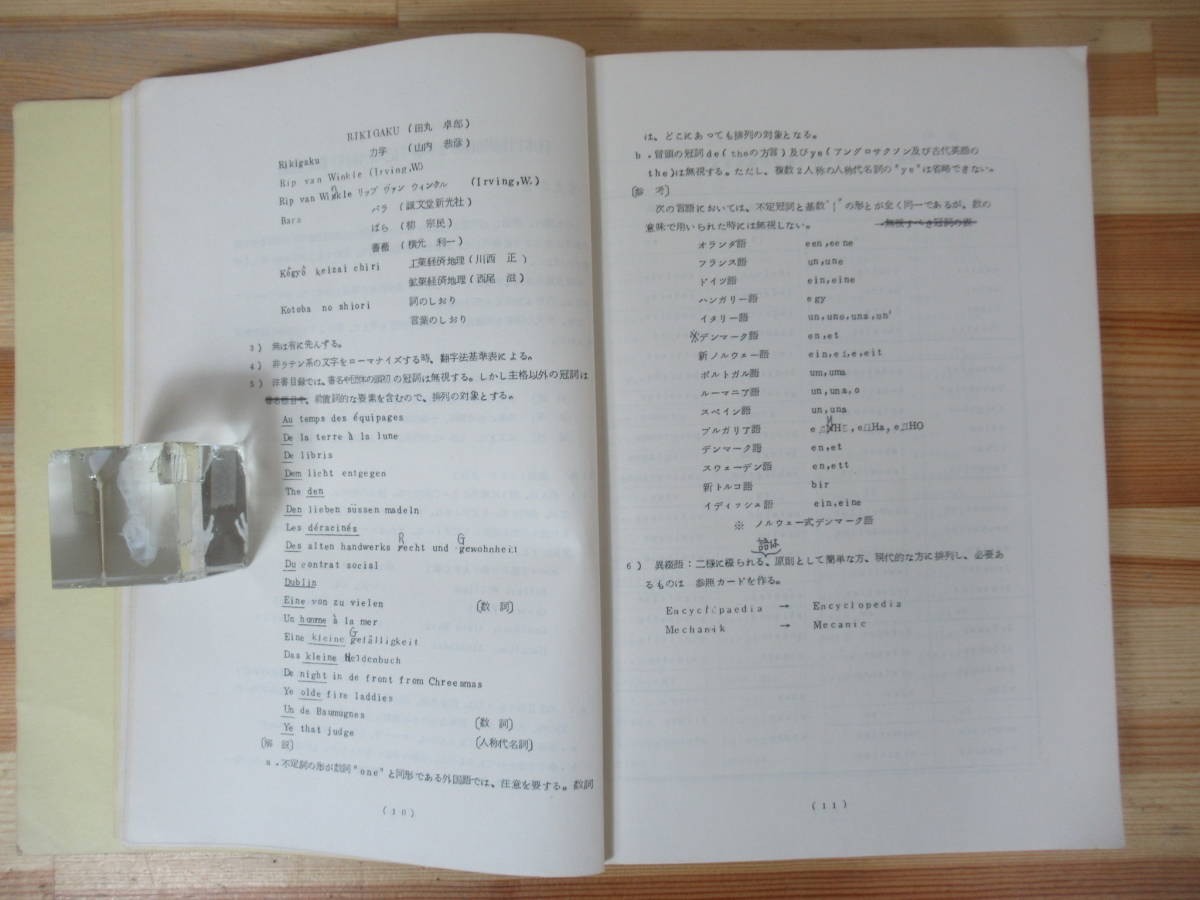 RIKIGAKU (田丸 卓郎)
Rikigaku 力学 (山内 恭彦)
Rip van Winkle (Irving,W)
Rip van Winkle リップ ヴァン ウィンクル (Irving,W.)
Bara バラ (誠文堂新光社)
ばら (柳 宗民)
薔薇 (横光 利一)
Kôgyô keizai chiri 工業経済地理 (川西 正)
鉱業経済地理 (西尾 滋)
Kotoba no shiori 詞のしおり
言葉のしおり
3) 無は有に先んずる。
4) 非ラテン系の文字をローマナイズする時、翻字法基準表による。
5) 洋書目録では、書名や団体の頭初の冠詞は無視する。しかし主格以外の冠詞は
、前置詞的な要素を含むので、排列の対象とする。
Au temps des équipages
De la terre à la lune
De libris
Dem licht entgegen
The den
Den lieben süssen madeln
Les déracinés
Des alten handwerks Recht und Gewohnheit
Du contrat social
Dublin
Eine von zu vielen (数 詞)
Un homme à la mer
Eine kleine Gefälligkeit
Das kleine Heldenbuch
De night in de front from Chreesmas
Ye olde fire laddies
Un de Baumugnes (数 詞)
Ye that judge (人称代名詞)
(解 説)
a.不定詞の形が数詞"one"と同形である外国語では、注意を要する。数詞
(10)
は、どこにあっても排列の対象となる。
b.冒頭の冠詞de(theの方言)及びye(アングロサクソン及び古代英語の
the)は無視する。ただし、複数2人称の人称代名詞の"ye"は省略できない。
(参 考)
次の言語においては、不定冠詞と基数"1"の形とが全く同一であるが、数の
意味で用いられた時には無視しない。 無視すべき冠詞の表
オランダ語 een,eene
フランス語 un,une
ドイツ語 ein,eine
ハンガリー語 egy
イタリー語 un,uno,una,un'
※デンマーク語 en,et
新ノルウェー語 ein,ei,e,eit
ポルトガル語 um,uma
ルーマニア語 un,una,o
スペイン語 un,una
ブルガリア語
デンマーク語 en,et
スウェーデン語 en,ett
新トルコ語 bir
イディッシュ語 ein,eine
※ ノルウェー式デンマーク語
6) 異綴語:二様に綴られる語は、原則として簡単な方、現代的な方に排列し、必要あ
るものは 参照カードを作る。
Encyclopaedia → Encyclopedia
Mechanik → Mecanic
(11)